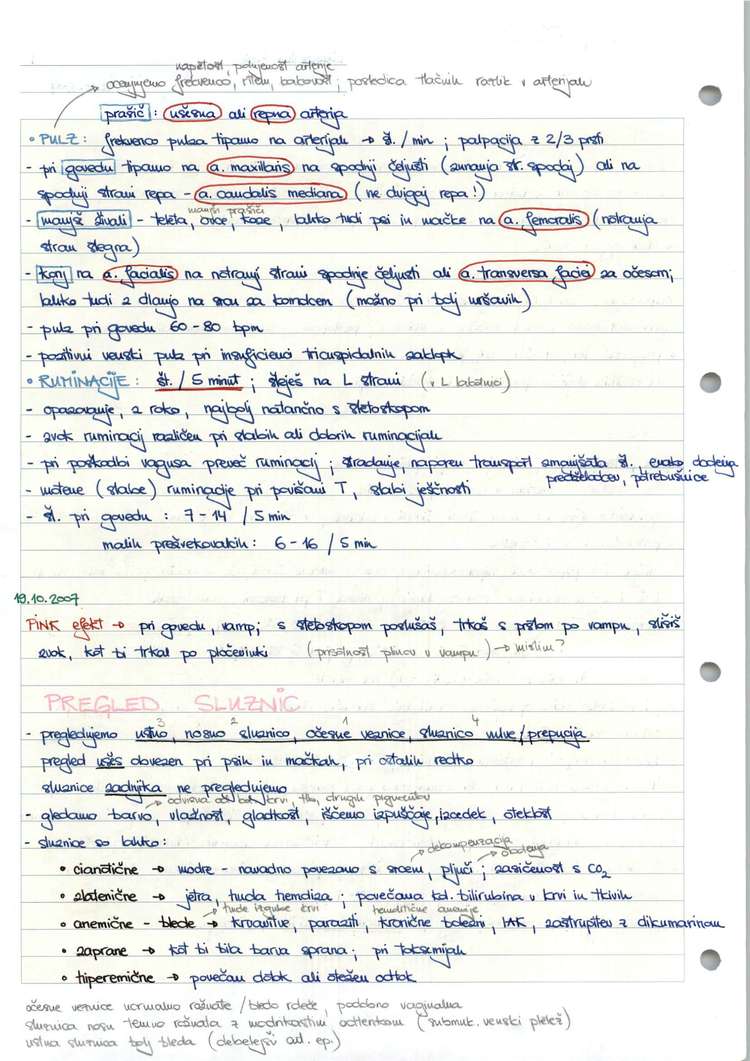 napetost, polnjenost arterije
→ ocenjujemo frekvenco, ritem, kakovost; posledica tlačnih razlik v arterijah
prašič: ušesna ali repna arterija
• PULZ: frekvenco pulza tipamo na arterijah → št. / min ; palpacija z 2/3 prsti
- pri govedu tipamo na a. maxillaris na spodnji čeljusti (zunanja str. spodaj) ali na
spodnji strani repa - a. caudalis mediana (ne dvigaj repa!)
manjši prašiči
- manjše živali - teleta, ovce, koze, lahko tudi psi in mačke na a. femoralis (notranja
stran stegna)
- konj na a. facialis na notranji strani spodnje čeljusti ali a. transversa faciei za očesom;
lahko tudi z dlanjo na srcu za komolcem (možno pri bolj suhih)
- pulz pri govedu 60 - 80 bpm
- pozitivni venski pulz pri insuficienci tricuspidalnih zaklopk
• RUMINACIJE: št. / 5 minut ; šteješ na L strani (v L lakotnici)
- opazovanje, z roko, najbolj natančno s stetoskopom
- zvok ruminacij različen pri slabih ali dobrih ruminacijah
- pri poškodbi vagusa preveč ruminacij ; stradanje, naporen transport zmanjšata št., enako vnetja
predželodcev, potrebušnice
- motene (slabe) ruminacije pri povišani T, slabi ješčnosti
- št. pri govedu : 7 - 14 / 5 min
malih prežvekovalcih : 6 - 16 / 5 min
19.10.2007
PINK efekt → pri govedu, vamp; s stetoskopom poslušaš, trkaš s prstom po vampu, slišiš
zvok, kot bi trkal po pločevinki (prisotnost plinov v vampu) → mislim?
PREGLED SLUZNIC
3 2 1 4
- pregledujemo ustno, nosno sluznico, očesne veznice, sluznico vulve/prepucija
pregled ušes obvezen pri psih in mačkah, pri ostalih redko
sluznice zadnjika ne pregledujemo
→ odvisna od kol. krvi, Hb, drugih pigmentov
- gledamo barvo, vlažnost, gladkost, iščemo izpuščaje, izcedek, oteklost
- sluznice so lahko:
→ dekompenzacija
→ obolenja
• cianotične → modre - navadno povezano s srcem, pljuči ; zasičenost s CO2
• zlatenične → jetra, huda hemoliza ; povečana kol. bilirubina v krvi in tkivih
→ hude izgube krvi hemolitične anemije
• anemične - blede → krvavitve, paraziti, kronične bolezni, IAK, zastrupitev z dikumarinom
• zaprane → kot bi bila barva sprana ; pri toksemijah
• hiperemične → povečan dotok ali otežen odtok
očesne veznice normalno rožnate / bledo rdeče, podobno vaginalna
sluznica nosu temno rožnata z modrikastim odtenkom (submuk. venski pletež)
ustna sluznica bolj bleda (debelejši od. ep.)